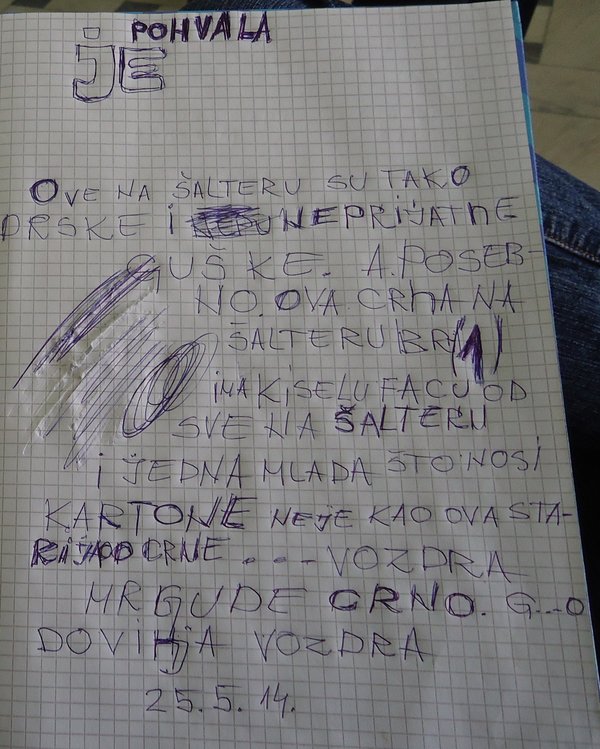 POHVALA
JE
OVE NA ŠALTERU SU TAKO
DRSKE I NEPRIJATNE
GUSKE. A. POSEB-
NO. OVA CRNA NA
ŠALTERU BR(1)
IMA KISELU FACU OD
SVE NA ŠALTERU
I JEDNA MLADA ŠTO NOSI
KARTONE NEJE KAO OVA STA-
CRNE.... VOZDRA
MRGUDE CRNO. G...O
VOZDRA
25.5.14.